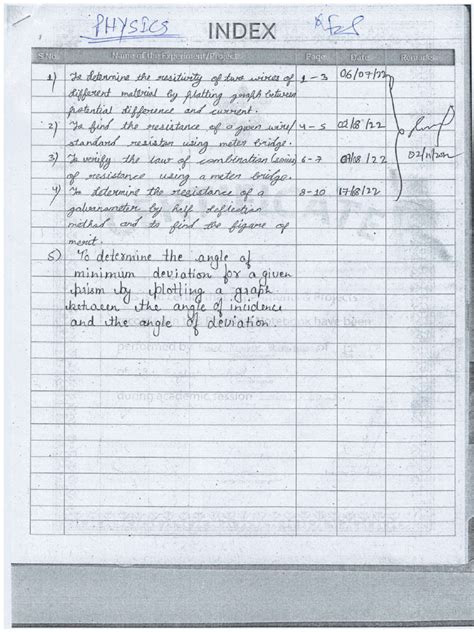 PHYSICS INDEX
S.No. Name of the Experiment/Project Page Date Remarks
1) To determine the resitivity of two wires of 1-3 06/07/22
different material by plotting graph between
potential difference and current.
2) To find the resistance of a given wire/ 4-5 02/08/22
standard resistor using meter bridge.
3) To verify the law of combination (series) 6-7 08/22
of resistance using a meter bridge. 02/11/2022
4) To determine the resistance of a 8-10 17/08/22
galvanometer by half deflection
method and to find the figure of
merit.
5) To determine the angle of
minimum deviation for a given
prism by plotting a graph
between the angle of incidence
and the angle of deviation.
during academic session